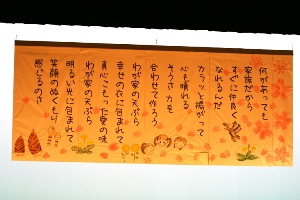 何があっても
家族だから
すぐに仲良く
なれるんだ
カラッと揚がって
心も晴れる
そうさ 力を
合わせて作ろう
わが家の天ぷら
幸せの衣に包まれて
真心こもった愛の味
わが家の天ぷら
明るい光に包まれて
笑顔のぬくもり
感じるのさ